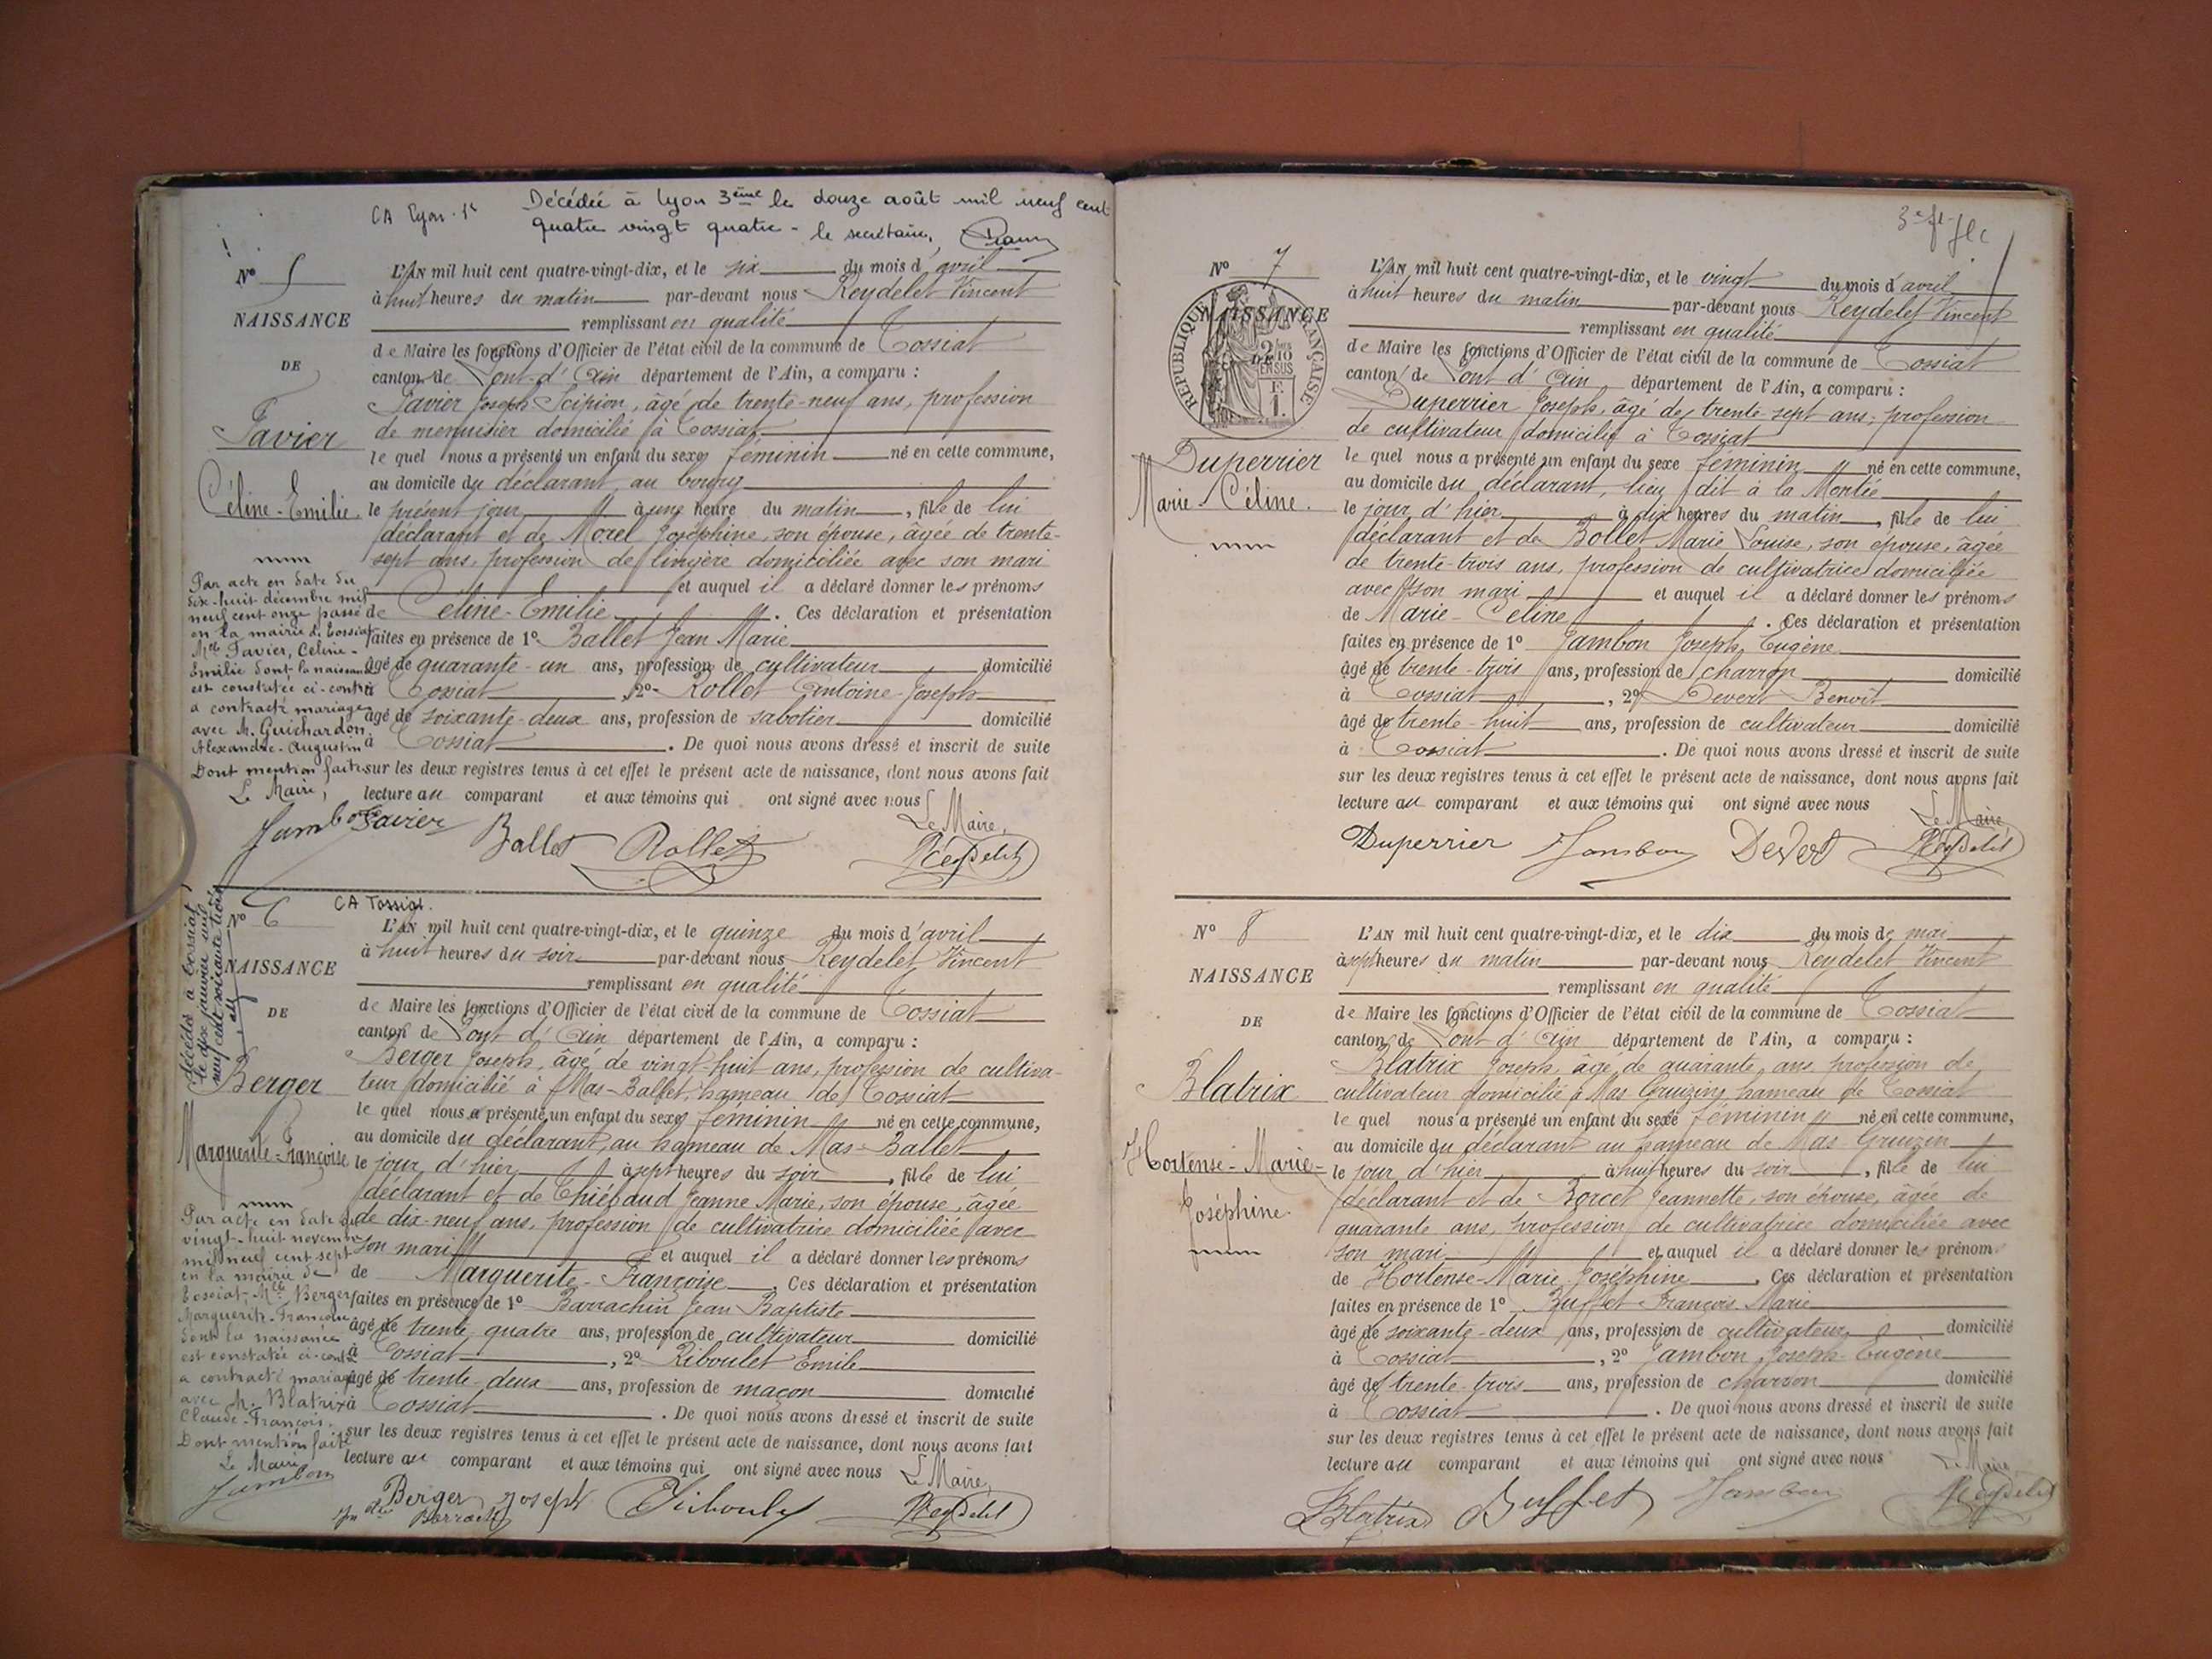 CA Lyon
Décédée à Lyon 3ème le douze août mil neuf cent
quatre vingt quatre - le secrétaire,
N° 5
NAISSANCE
DE
Favier
Céline-Emilie.
L'AN mil huit cent quatre-vingt-dix, et le six du mois d'avril
à huit heures du matin par-devant nous Reydelet Vincent
remplissant en qualité
de Maire les fonctions d'Officier de l'état civil de la commune de Tossiat
canton de Pont-d'Ain département de l'Ain, a comparu :
Favier Joseph Scipion, âgé de trente-neuf ans, profession
de menuisier domicilié à Tossiat
le quel nous a présenté un enfant du sexe féminin né en cette commune,
au domicile du déclarant, au bourg
le présent jour à une heure du matin, fille de lui
déclarant et de Morel Joséphine, son épouse, âgée de trente-
sept ans, profession de lingère domiciliée avec son mari
et auquel il a déclaré donner les prénoms
de Céline-Emilie. Ces déclaration et présentation
faites en présence de 1° Ballet Jean Marie
âgé de quarante-un ans, profession de cultivateur domicilié
à Tossiat, 2° Rollet Antoine-Joseph
âgé de soixante-deux ans, profession de sabotier domicilié
à Tossiat. De quoi nous avons dressé et inscrit de suite
sur les deux registres tenus à cet effet le présent acte de naissance, dont nous avons fait
lecture au comparant et aux témoins qui ont signé avec nous
Le Maire,
Favier Ballet Rollet Reydelet
Par acte en date du
dix-huit décembre mil
neuf cent onze passé
en la mairie de Tossiat
Mlle Favier, Céline-
Emilie dont la naissance
est constatée ci-contre
a contracté mariage
avec M. Guichardon
Alexandre-Augustin
Dont mention faite
Le Maire,
Jambon
N° 6
CA Tossiat.
NAISSANCE
DE
Berger
Marguerite-Françoise
décédée à Tossiat
le dix janvier mil
neuf cent soixante trois
L'AN mil huit cent quatre-vingt-dix, et le quinze du mois d'avril
à huit heures du soir par-devant nous Reydelet Vincent
remplissant en qualité
de Maire les fonctions d'Officier de l'état civil de la commune de Tossiat
canton de Pont d'Ain département de l'Ain, a comparu :
Berger Joseph, âgé de vingt-huit ans, profession de cultiva-
teur domicilié à Mas-Ballet, hameau de Tossiat
le quel nous a présenté un enfant du sexe féminin né en cette commune,
au domicile du déclarant, au hameau de Mas-Ballet
le jour d'hier à sept heures du soir, fille de lui
déclarant et de Thiébaud Jeanne Marie, son épouse, âgée
de dix-neuf ans, profession de cultivatrice domiciliée avec
son mari et auquel il a déclaré donner les prénoms
de Marguerite-Françoise. Ces déclaration et présentation
faites en présence de 1° Barrachin Jean Baptiste
âgé de trente quatre ans, profession de cultivateur domicilié
à Tossiat, 2° Riboulet Emile
âgé de trente-deux ans, profession de maçon domicilié
à Tossiat. De quoi nous avons dressé et inscrit de suite
sur les deux registres tenus à cet effet le présent acte de naissance, dont nous avons fait
lecture au comparant et aux témoins qui ont signé avec nous
Le Maire,
Berger Joseph Riboulet Reydelet
Par acte en date du
vingt-huit novembre
mil neuf cent sept
en la mairie de
Tossiat, Mlle Berger
Marguerite-Françoise
dont la naissance
est constatée ci-contre
a contracté mariage
avec M. Blatrix
Claude-François.
Dont mention faite
Le Maire
Jambon
N° 7
NAISSANCE
DE
RÉPUBLIQUE FRANÇAISE
Duperrier
Marie-Céline.
L'AN mil huit cent quatre-vingt-dix, et le vingt du mois d'avril
à huit heures du matin par-devant nous Reydelet Vincent
remplissant en qualité
de Maire les fonctions d'Officier de l'état civil de la commune de Tossiat
canton de Pont d'Ain département de l'Ain, a comparu :
Duperrier Joseph, âgé de trente-sept ans, profession
de cultivateur domicilié à Tossiat
le quel nous a présenté un enfant du sexe féminin né en cette commune,
au domicile du déclarant, lieu dit à la Montée
le jour d'hier à dix heures du matin, fille de lui
déclarant et de Bollet Marie Louise, son épouse, âgée
de trente-trois ans, profession de cultivatrice domiciliée
avec son mari et auquel il a déclaré donner les prénoms
de Marie-Céline. Ces déclaration et présentation
faites en présence de 1° Jambon Joseph, Eugène
âgé de trente-trois ans, profession de charron domicilié
à Tossiat, 2° Devert Benoît
âgé de trente-huit ans, profession de cultivateur domicilié
à Tossiat. De quoi nous avons dressé et inscrit de suite
sur les deux registres tenus à cet effet le présent acte de naissance, dont nous avons fait
lecture au comparant et aux témoins qui ont signé avec nous
Le Maire
Duperrier Jambon Devert Reydelet
N° 8
NAISSANCE
DE
Blatrix
Hortense-Marie-
Joséphine.
L'AN mil huit cent quatre-vingt-dix, et le dix du mois de mai
à sept heures du matin par-devant nous Reydelet Vincent
remplissant en qualité
de Maire les fonctions d'Officier de l'état civil de la commune de Tossiat
canton de Pont d'Ain département de l'Ain, a comparu :
Blatrix Joseph, âgé de quarante ans profession de
cultivateur domicilié à Mas Gruizin, hameau de Tossiat
le quel nous a présenté un enfant du sexe féminin né en cette commune,
au domicile du déclarant au hameau de Mas-Gruizin
le jour d'hier à huit heures du soir, fille de lui
déclarant et de Borcet Jeannette, son épouse, âgée de
quarante ans, profession de cultivatrice domiciliée avec
son mari et auquel il a déclaré donner les prénoms
de Hortense-Marie Joséphine. Ces déclaration et présentation
faites en présence de 1° Buffet François-Marie
âgé de soixante-deux ans, profession de cultivateur domicilié
à Tossiat, 2° Jambon Joseph-Eugène
âgé de trente-trois ans, profession de charron domicilié
à Tossiat. De quoi nous avons dressé et inscrit de suite
sur les deux registres tenus à cet effet le présent acte de naissance, dont nous avons fait
lecture au comparant et aux témoins qui ont signé avec nous
Le Maire
Blatrix Buffet Jambon Reydelet